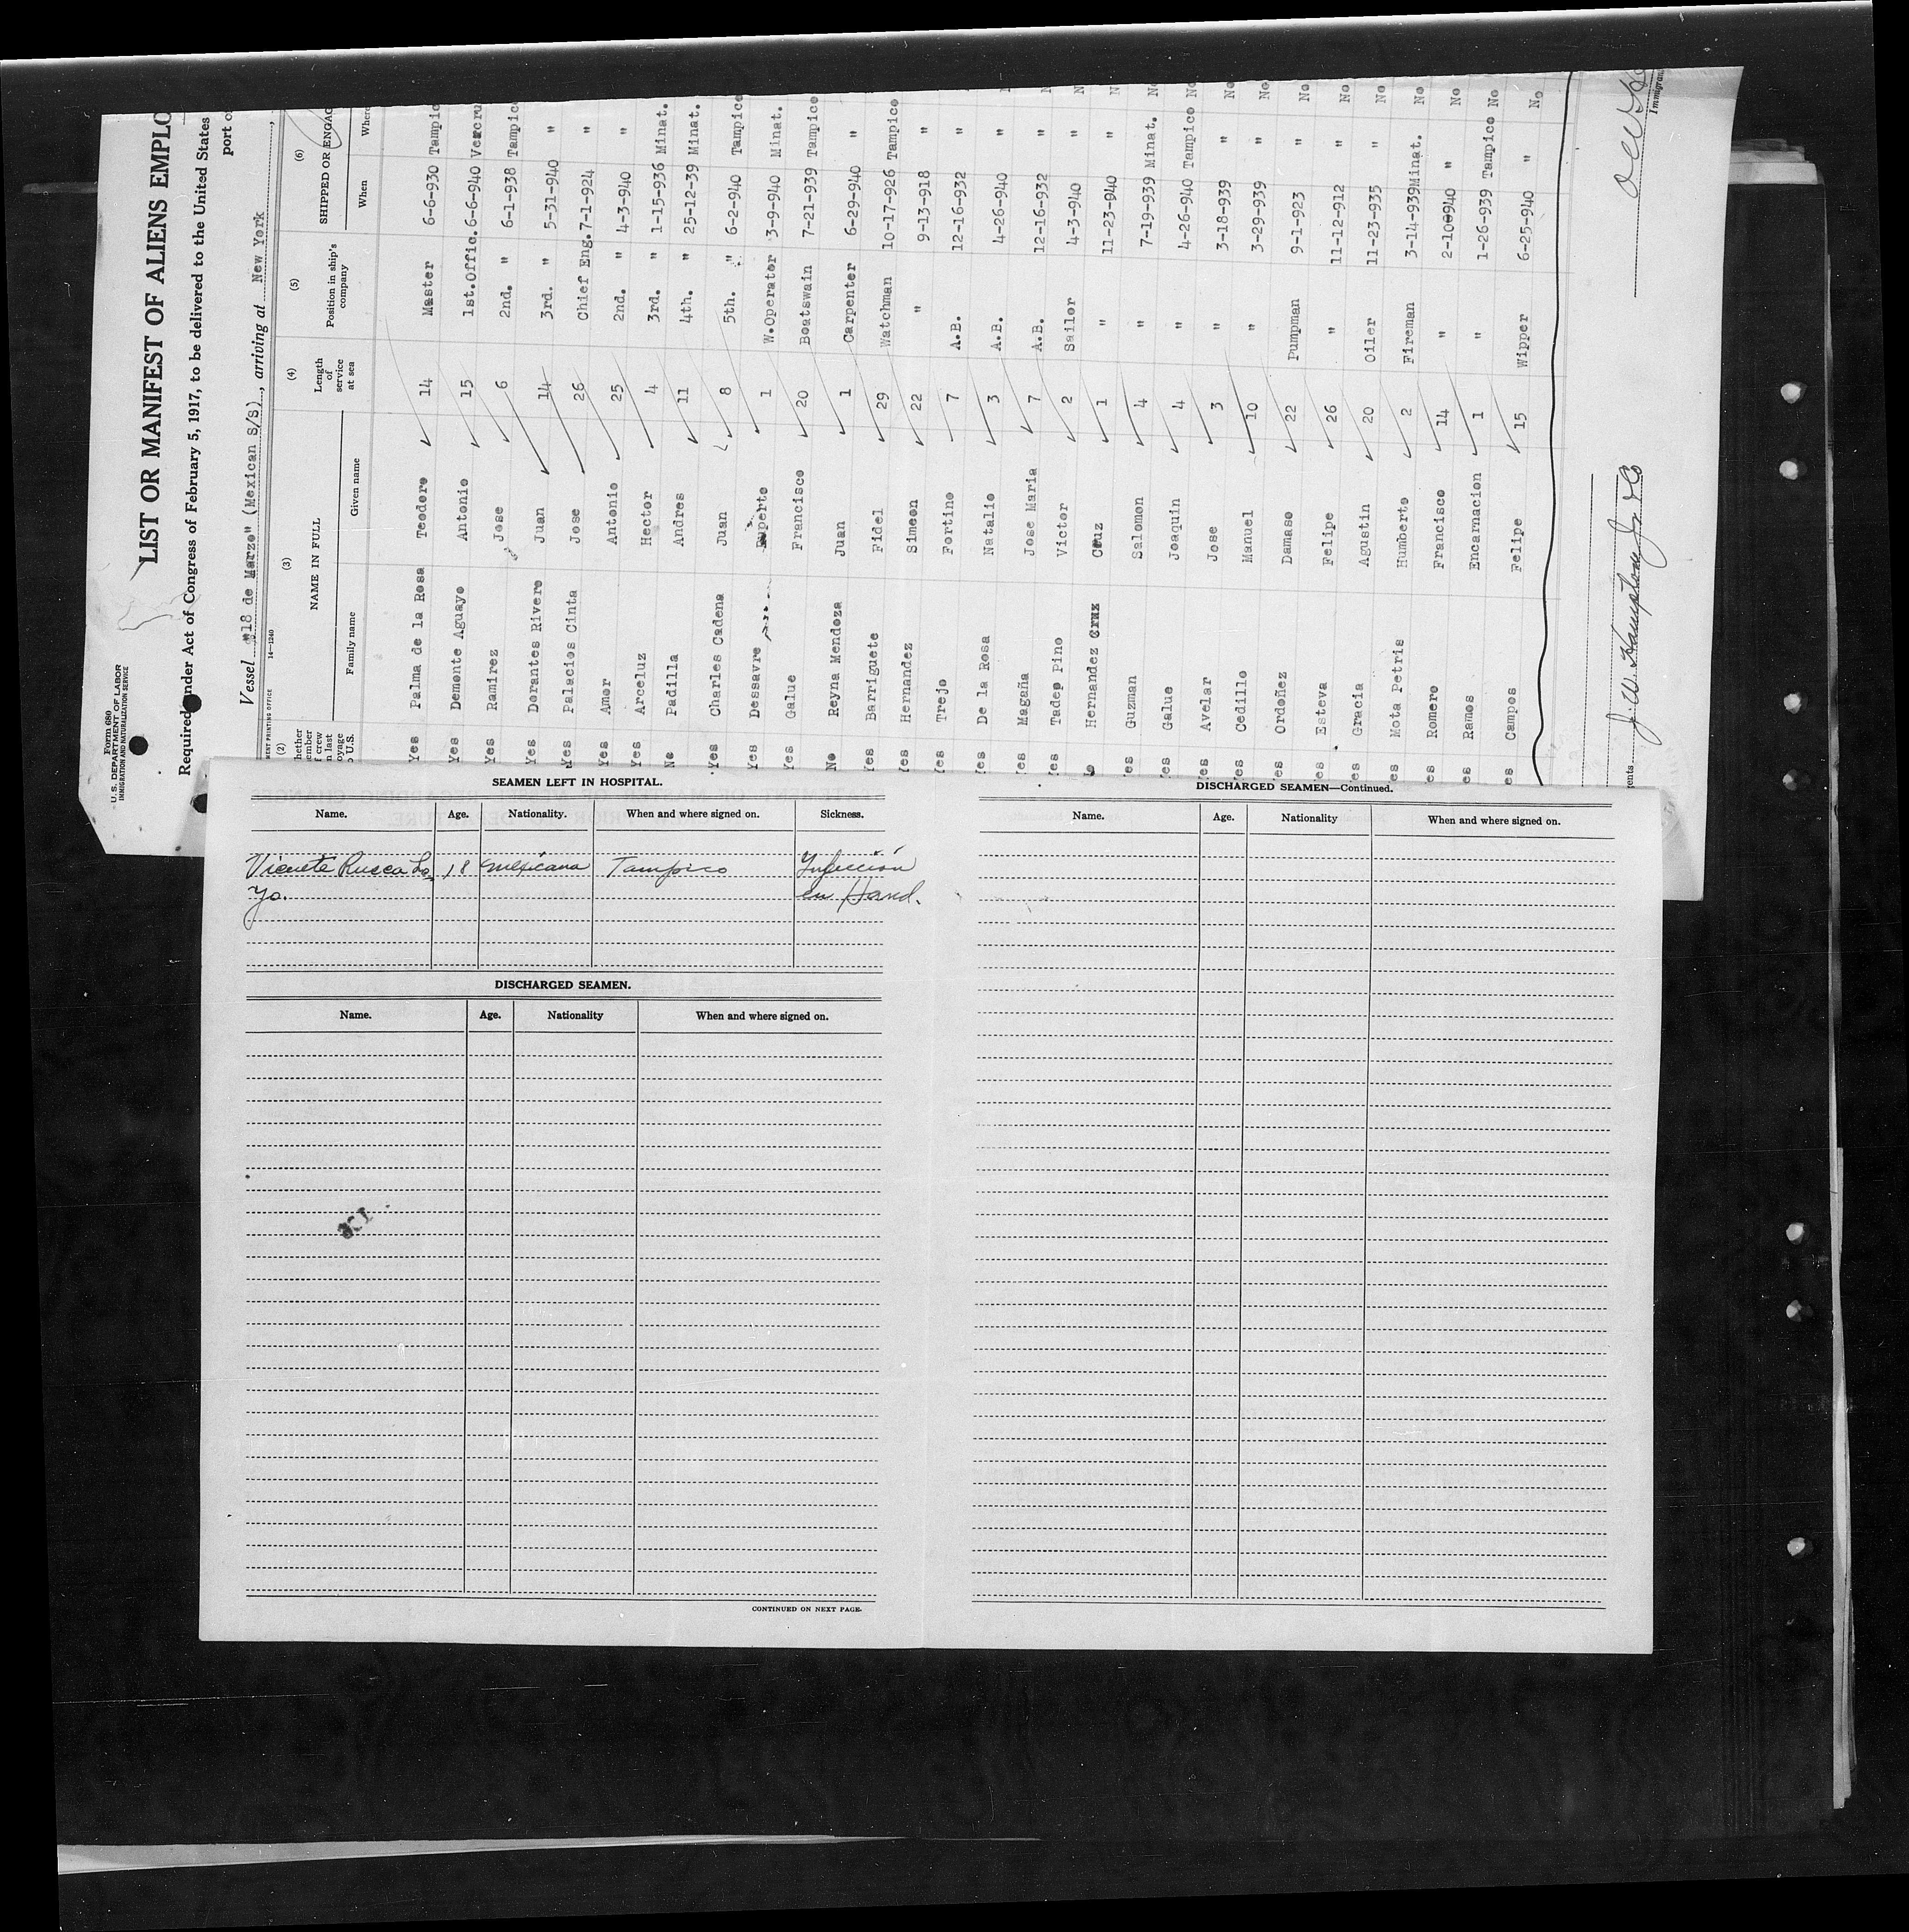 Form 680
U. S. DEPARTMENT OF LABOR
IMMIGRATION AND NATURALIZATION SERVICE
LIST OR MANIFEST OF ALIENS EMPLO
Required under Act of Congress of February 5, 1917, to be delivered to the United States
port o
Vessel "18 de Marzo" (Mexican S/S), arriving at New York
14—1240
(2) (3) (4) (5) (6)
NAME IN FULL Length of service at sea Position in ship's company SHIPPED OR ENGAG
Family name Given name When Where
Yes Palma de la Rosa Teodoro 14 Master 6-6-930 Tampic
Yes Demonte Aguayo Antonio 15 1st.Offic. 6-6-940 Veracru
Yes Ramirez Jose 6 2nd. " 6-1-938 Tampic
Yes Dorantes Rivero Juan 14 3rd. " 5-31-940 "
Yes Palacios Cinta Jose 26 Chief Eng. 7-1-924 "
Yes Amor Antonio 25 2nd. " 4-3-940 "
Yes Arceluz Hector 4 3rd. " 1-15-936 Minat.
No Padilla Andres 11 4th. " 25-12-39 Minat.
Yes Charles Cadena Juan 8 5th. " 6-2-940 Tampico
Yes Dessavre Ruperto 1 W.Operator 3-9-940 Minat.
Yes Galue Francisco 20 Boatswain 7-21-939 Tampico
No Reyna Mendoza Juan 1 Carpenter 6-29-940 "
Yes Barriguete Fidel 29 Watchman 10-17-926 Tampico
Yes Hernandez Simeon 22 " 9-13-918 "
Yes Trejo Fortino 7 A.B. 12-16-932 "
Yes De la Rosa Natalio 3 A.B. 4-26-940 "
Yes Magaña Jose Maria 7 A.B. 12-16-932 "
Yes Tadeo Pino Victor 2 Sailor 4-3-940 "
Hernandez Cruz Cruz 1 " 11-23-940 "
es Guzman Salomon 4 " 7-19-939 Minat. No
Yes Galue Joaquin 4 " 4-26-940 Tampico No
Yes Avelar Jose 3 " 3-18-939 " No
Yes Cedillo Manuel 10 " 3-29-939 " No
es Ordoñez Damaso 22 Pumpman 9-1-923 " No
es Esteva Felipe 26 " 11-12-912 " No
es Gracia Agustin 20 Oiler 11-23-935 " No
es Mota Petris Humberto 2 Fireman 3-14-939 Minat. No
es Romero Francisco 14 " 2-10-940 " No
es Ramos Encarnacion 1 " 1-26-939 Tampico No
es Campos Felipe 15 Wipper 6-25-940 " No
SEAMEN LEFT IN HOSPITAL.
Name. Age. Nationality. When and where signed on. Sickness.
Vicente Rusca Lo- 18 mexicana Tampico Infección
yo. en Hand.
DISCHARGED SEAMEN.
Name. Age. Nationality When and where signed on.
CONTINUED ON NEXT PAGE.
DISCHARGED SEAMEN—Continued.
Name. Age. Nationality When and where signed on.